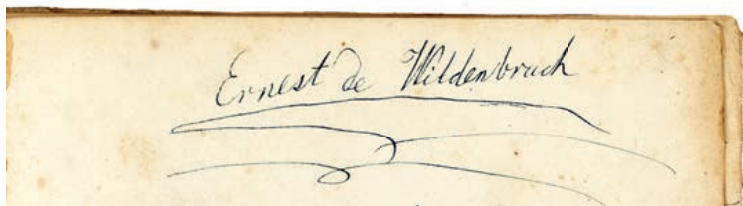 Ernest de Wildenbruch